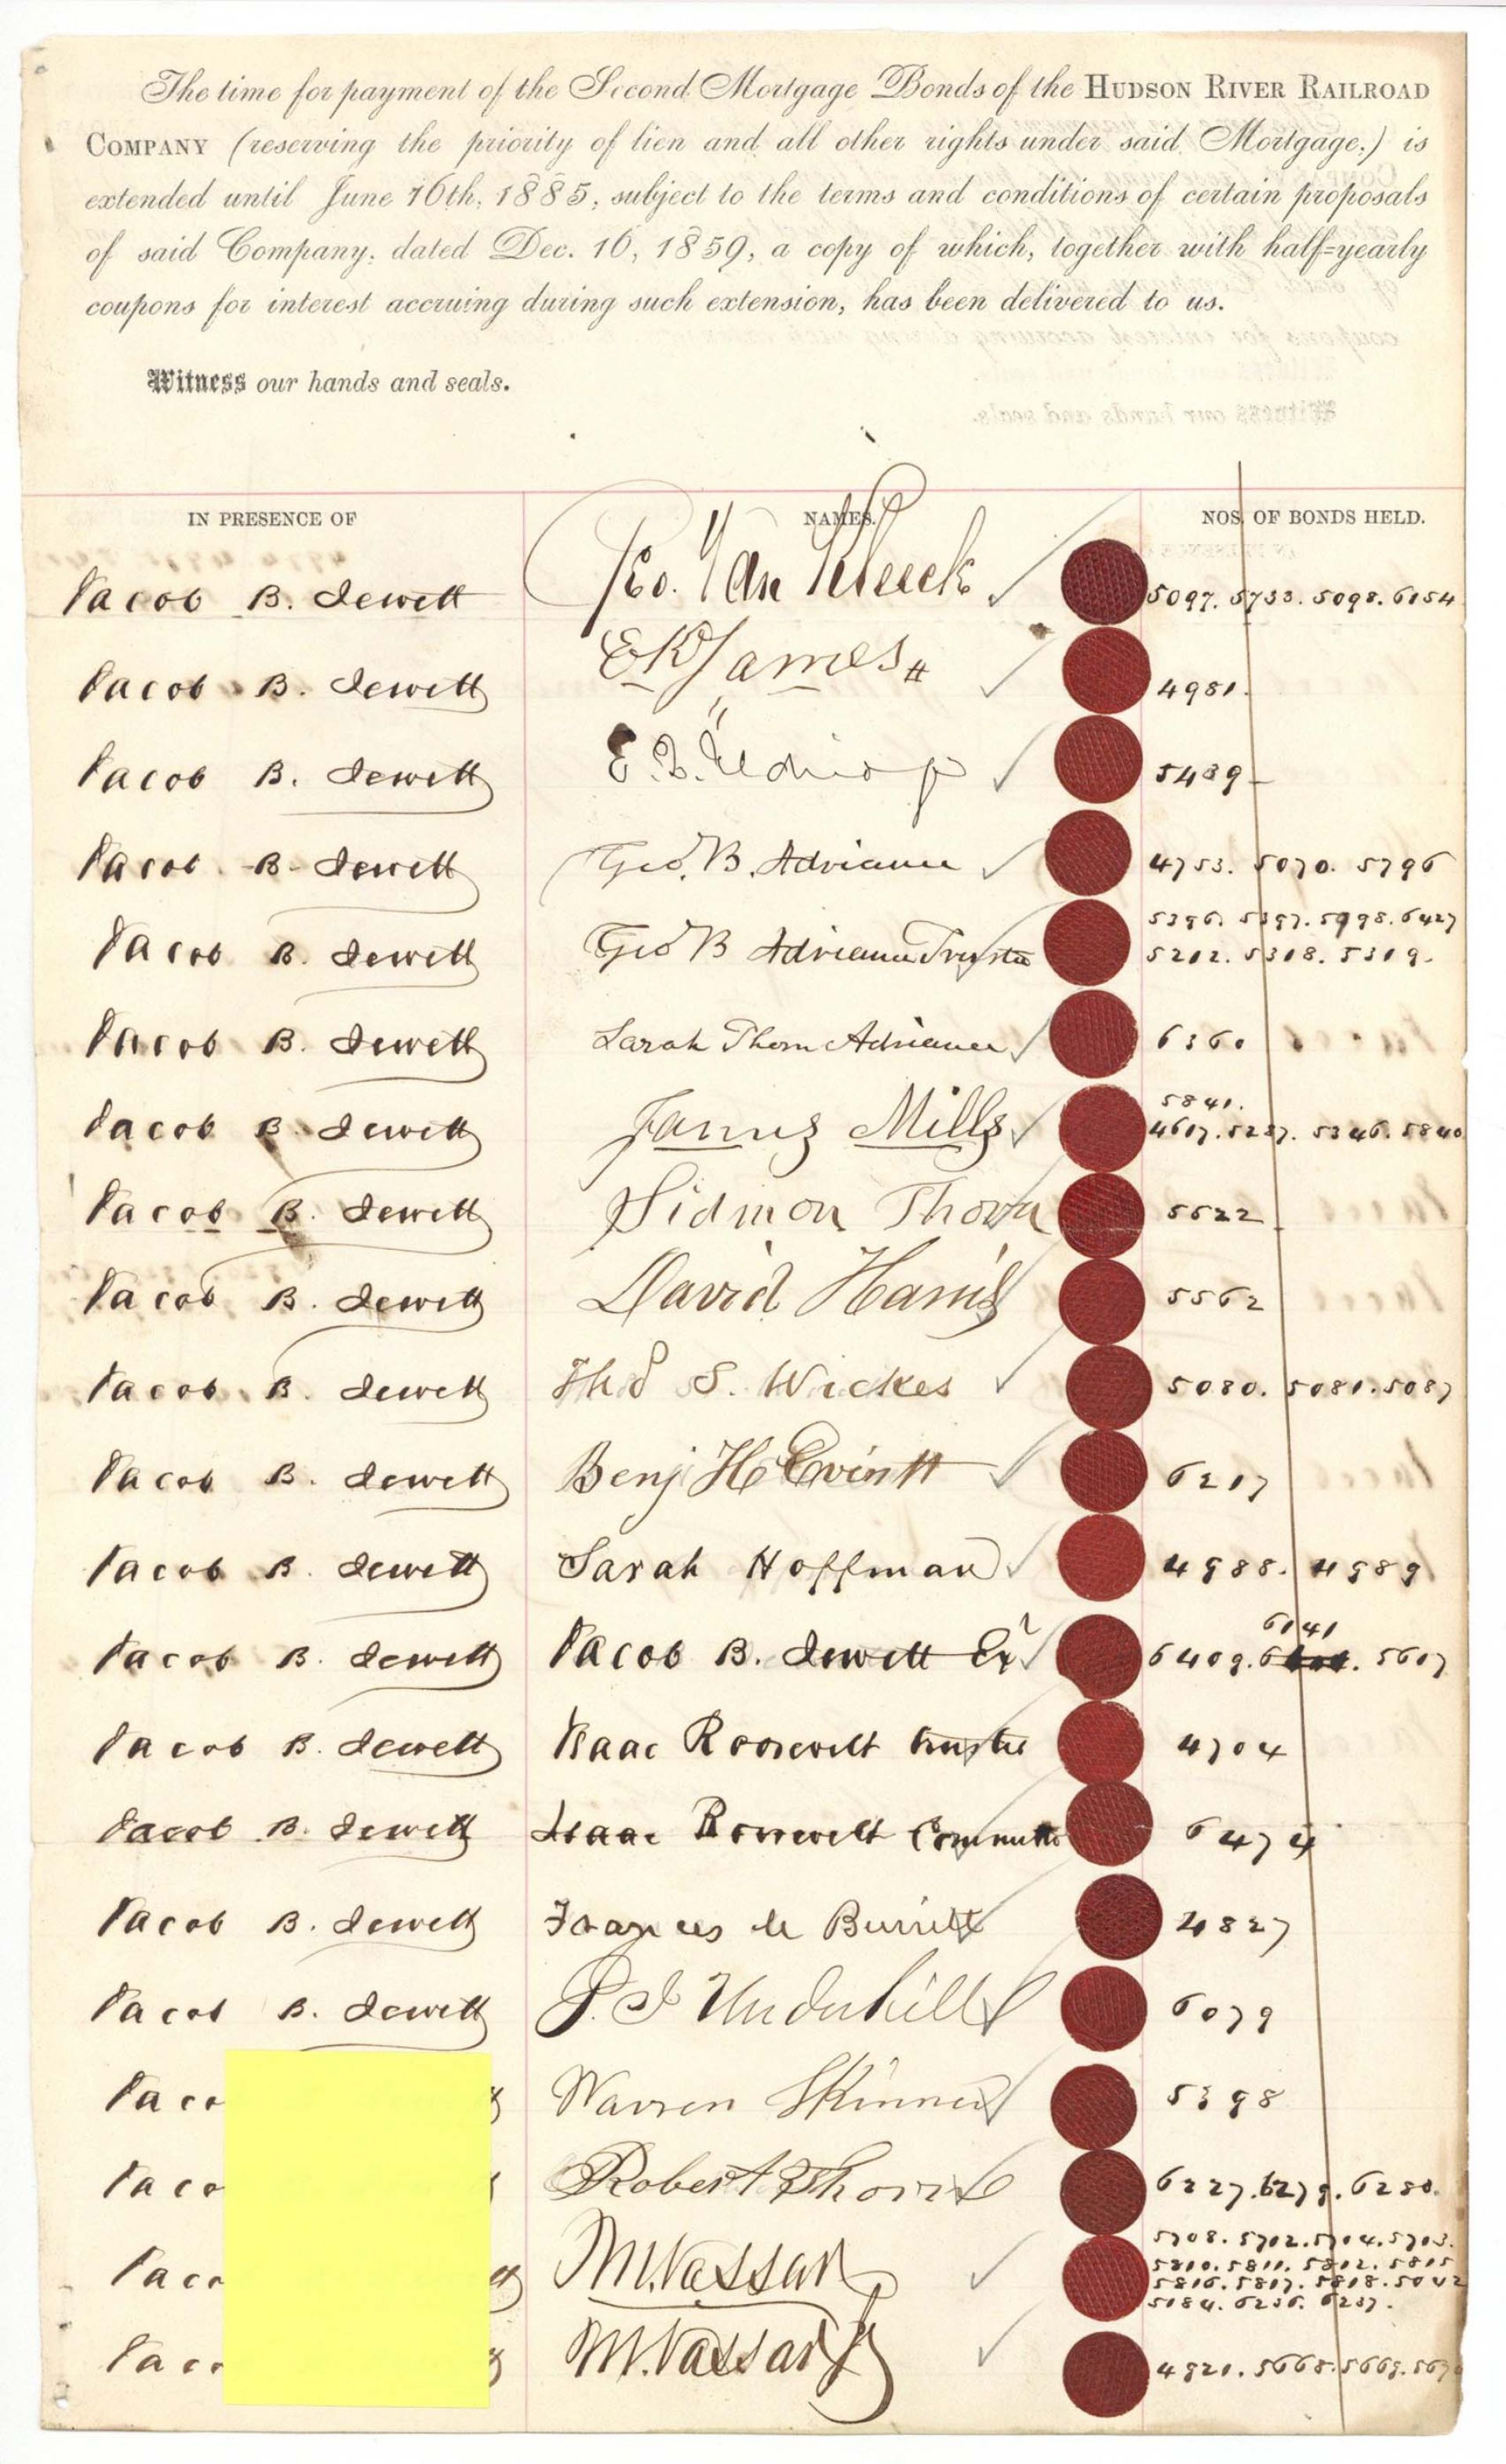 The time for payment of the Second Mortgage Bonds of the HUDSON RIVER RAILROAD
COMPANY (reserving the priority of lien and all other rights under said Mortgage,) is
extended until June 16th, 1885, subject to the terms and conditions of certain proposals
of said Company, dated Dec. 16, 1859, a copy of which, together with half-yearly
coupons for interest accruing during such extension, has been delivered to us.
Witness our hands and seals.
IN PRESENCE OF NAMES. NOS. OF BONDS HELD.
Jacob B. Jewett Van Kleeck 5097. 5733. 5098. 6154
Jacob B. Jewett E K James 4981.
Jacob B. Jewett E. B. 5489
Jacob B. Jewett Geo. B. Adriance 4753. 5070. 5796
5396. 5397. 5998. 6427
Jacob B. Jewett Geo B Adriance Trustee 5212. 5318. 5319.
Jacob B. Jewett Sarah Thorn Adriance 6360
5841.
Jacob B. Jewett James Mills 4617. 5237. 5346. 5840
Jacob B. Jewett Stidmon Thorn 5622
Jacob B. Jewett David Harris 5562
Jacob B. Jewett Thos S. Wickes 5080. 5081. 5087
Jacob B. Jewett Benj H 6217
Jacob B. Jewett Sarah Hoffman 4988. 4989
6141
Jacob B. Jewett Jacob B. Jewett Exr 6409. 5607
Jacob B. Jewett Isaac Roosevelt trustee 4704
Jacob B. Jewett Isaac Roosevelt Committee 6474
Jacob B. Jewett Frances 4827
Jacob B. Jewett Underhill 6079
Jaco Warren Skinner 5398
Jaco Robert Thorn 6227. 6279. 6280.
5708. 5702. 5704. 5703.
Jaco M. Vassar 5810. 5811. 5812. 5815
5816. 5817. 5818. 5042
5184. 6236. 6237.
Jaco M. Vassar Jr 4921. 5668. 5669.